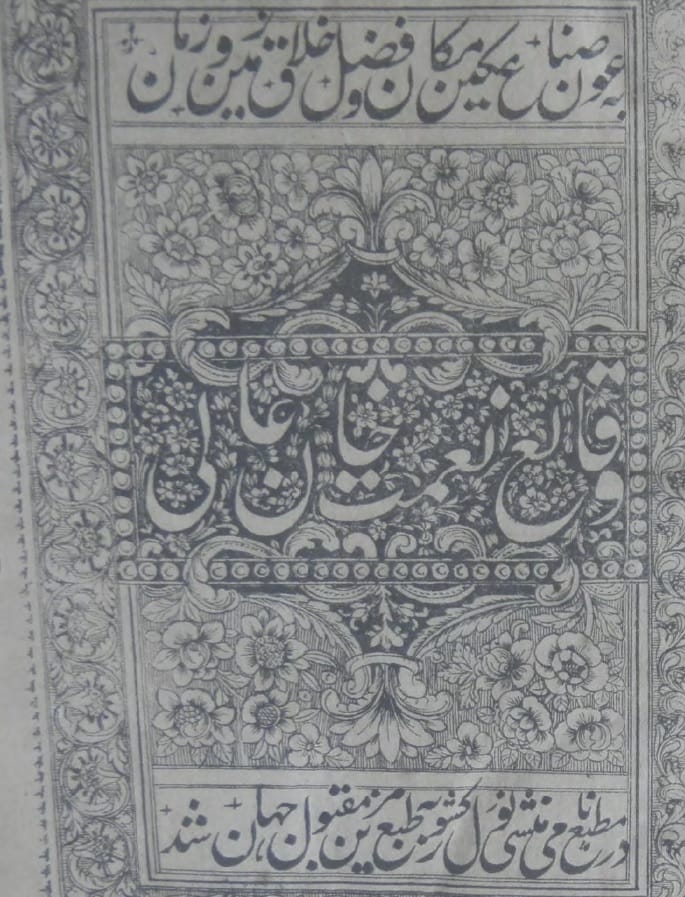 به عون صناع مکین مکان و فضل خلاق زمین و زمان
وقائع نعمت خان عالی
در مطبع نامی منشی نول کشور به طبع مزین مقبول جهان شد